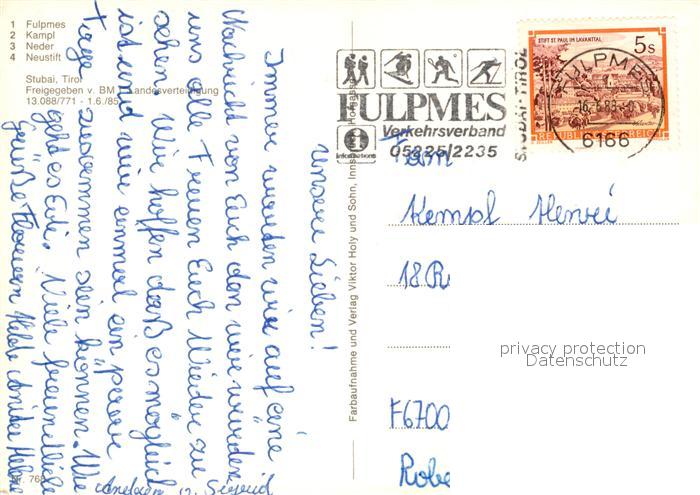 1 Fulpmes
2 Kampl
3 Neder
4 Neustift
Stubai, Tirol
Freigegeben v. BM f. Landesverteidigung
13.088/771 - 1.6./85
Unsere Lieben!
Immer warten wir auf eine
Nachricht von Euch den wir würden
uns alle freuen Euch Wieder zu
sehen. Wir hoffen daß es möglich
ist und wir einmal ein paar
Tage zusammen sein können. Wie
geht es Euch. Viele freundliche
Grüße Hilda
Siegfrid
Nr. 768
Farbaufnahme und Verlag Viktor Holy und Sohn, Inns
FULPMES
Verkehrsverband
05225/2235
Informationen
STUBAI-TIROL
STIFT ST. PAUL IM LAVANTTAL
5s
REPUBLIK ÖSTERREICH
FULPMES
6166
Fam
Kempf Henri
18 R
F6700
Robe
privacy protection
Datenschutz